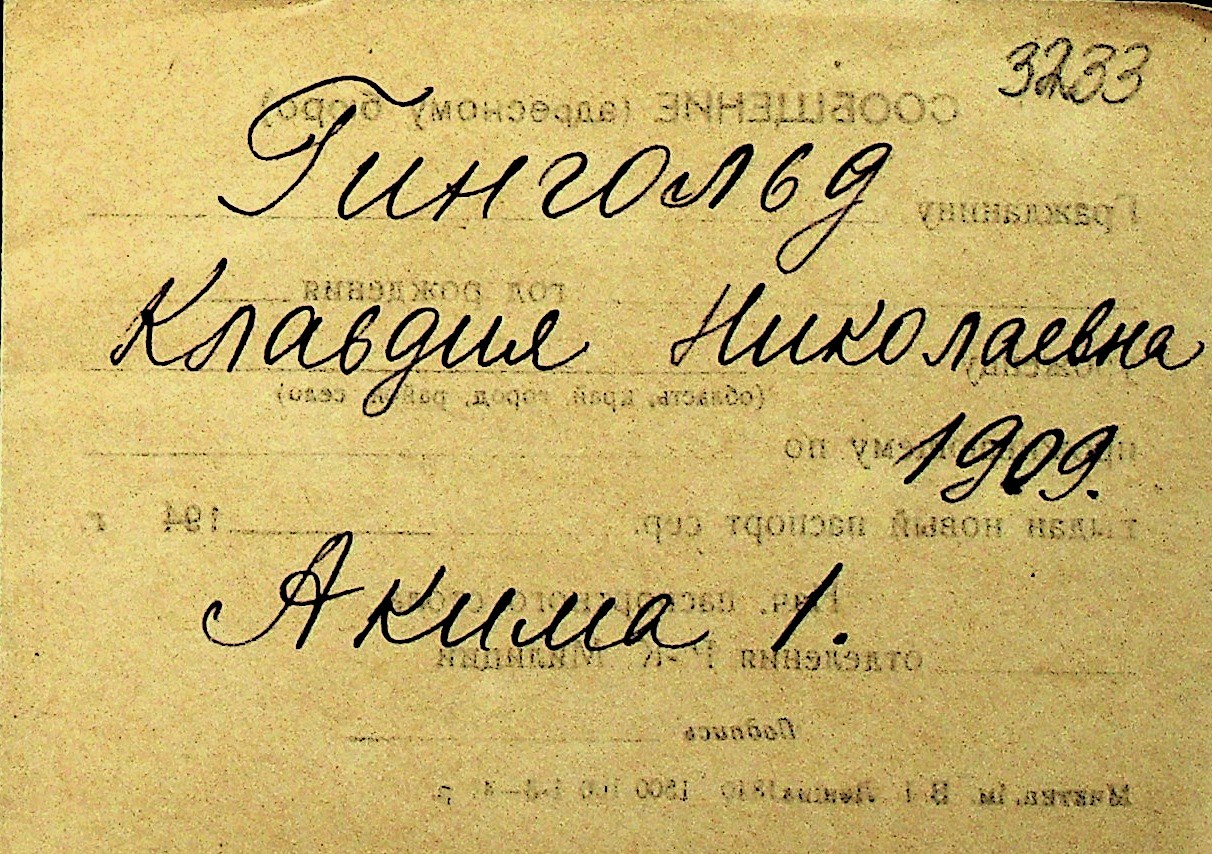 3233
СООБЩЕНИЕ (адресному бюро)
Гингольд
Гражданину
год рождения
Клавдия Николаевна
(область, край, город, район, село)
1909.
по
выдан новый паспорт сер. 194 г.
Акима 1.
Нач. паспортного стола
отделения Р-К Милиции
Подпись